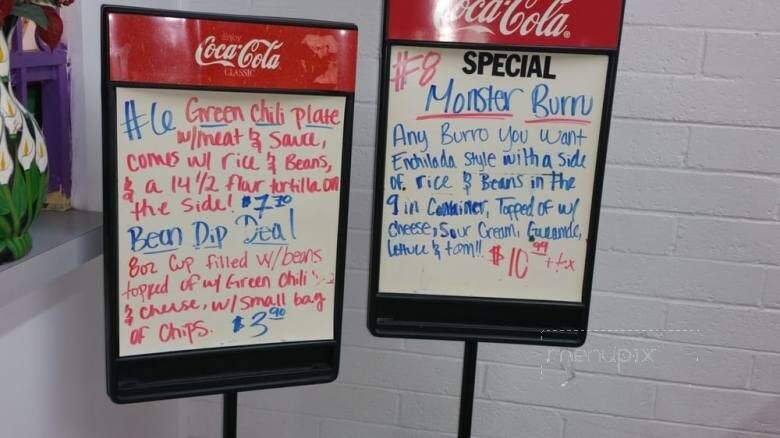 Enjoy
Coca-Cola
CLASSIC
#6 Green Chili Plate
w/meat & Sauce,
comes w/ rice & Beans,
& a 14 1/2 flour tortilla on
the side! $7.30
Bean Dip Deal
8oz Cup filled w/beans
topped of w/ Green Chili
& cheese, w/ small bag
of Chips. $3.90
Coca-Cola
SPECIAL
#8
Monster Burro
Any Burro you want
Enchilada style with a side
of rice & Beans in the
9 in Container, Topped of w/
cheese, Sour Cream,
lettuce & tom!! $10.99
+tx
menupix